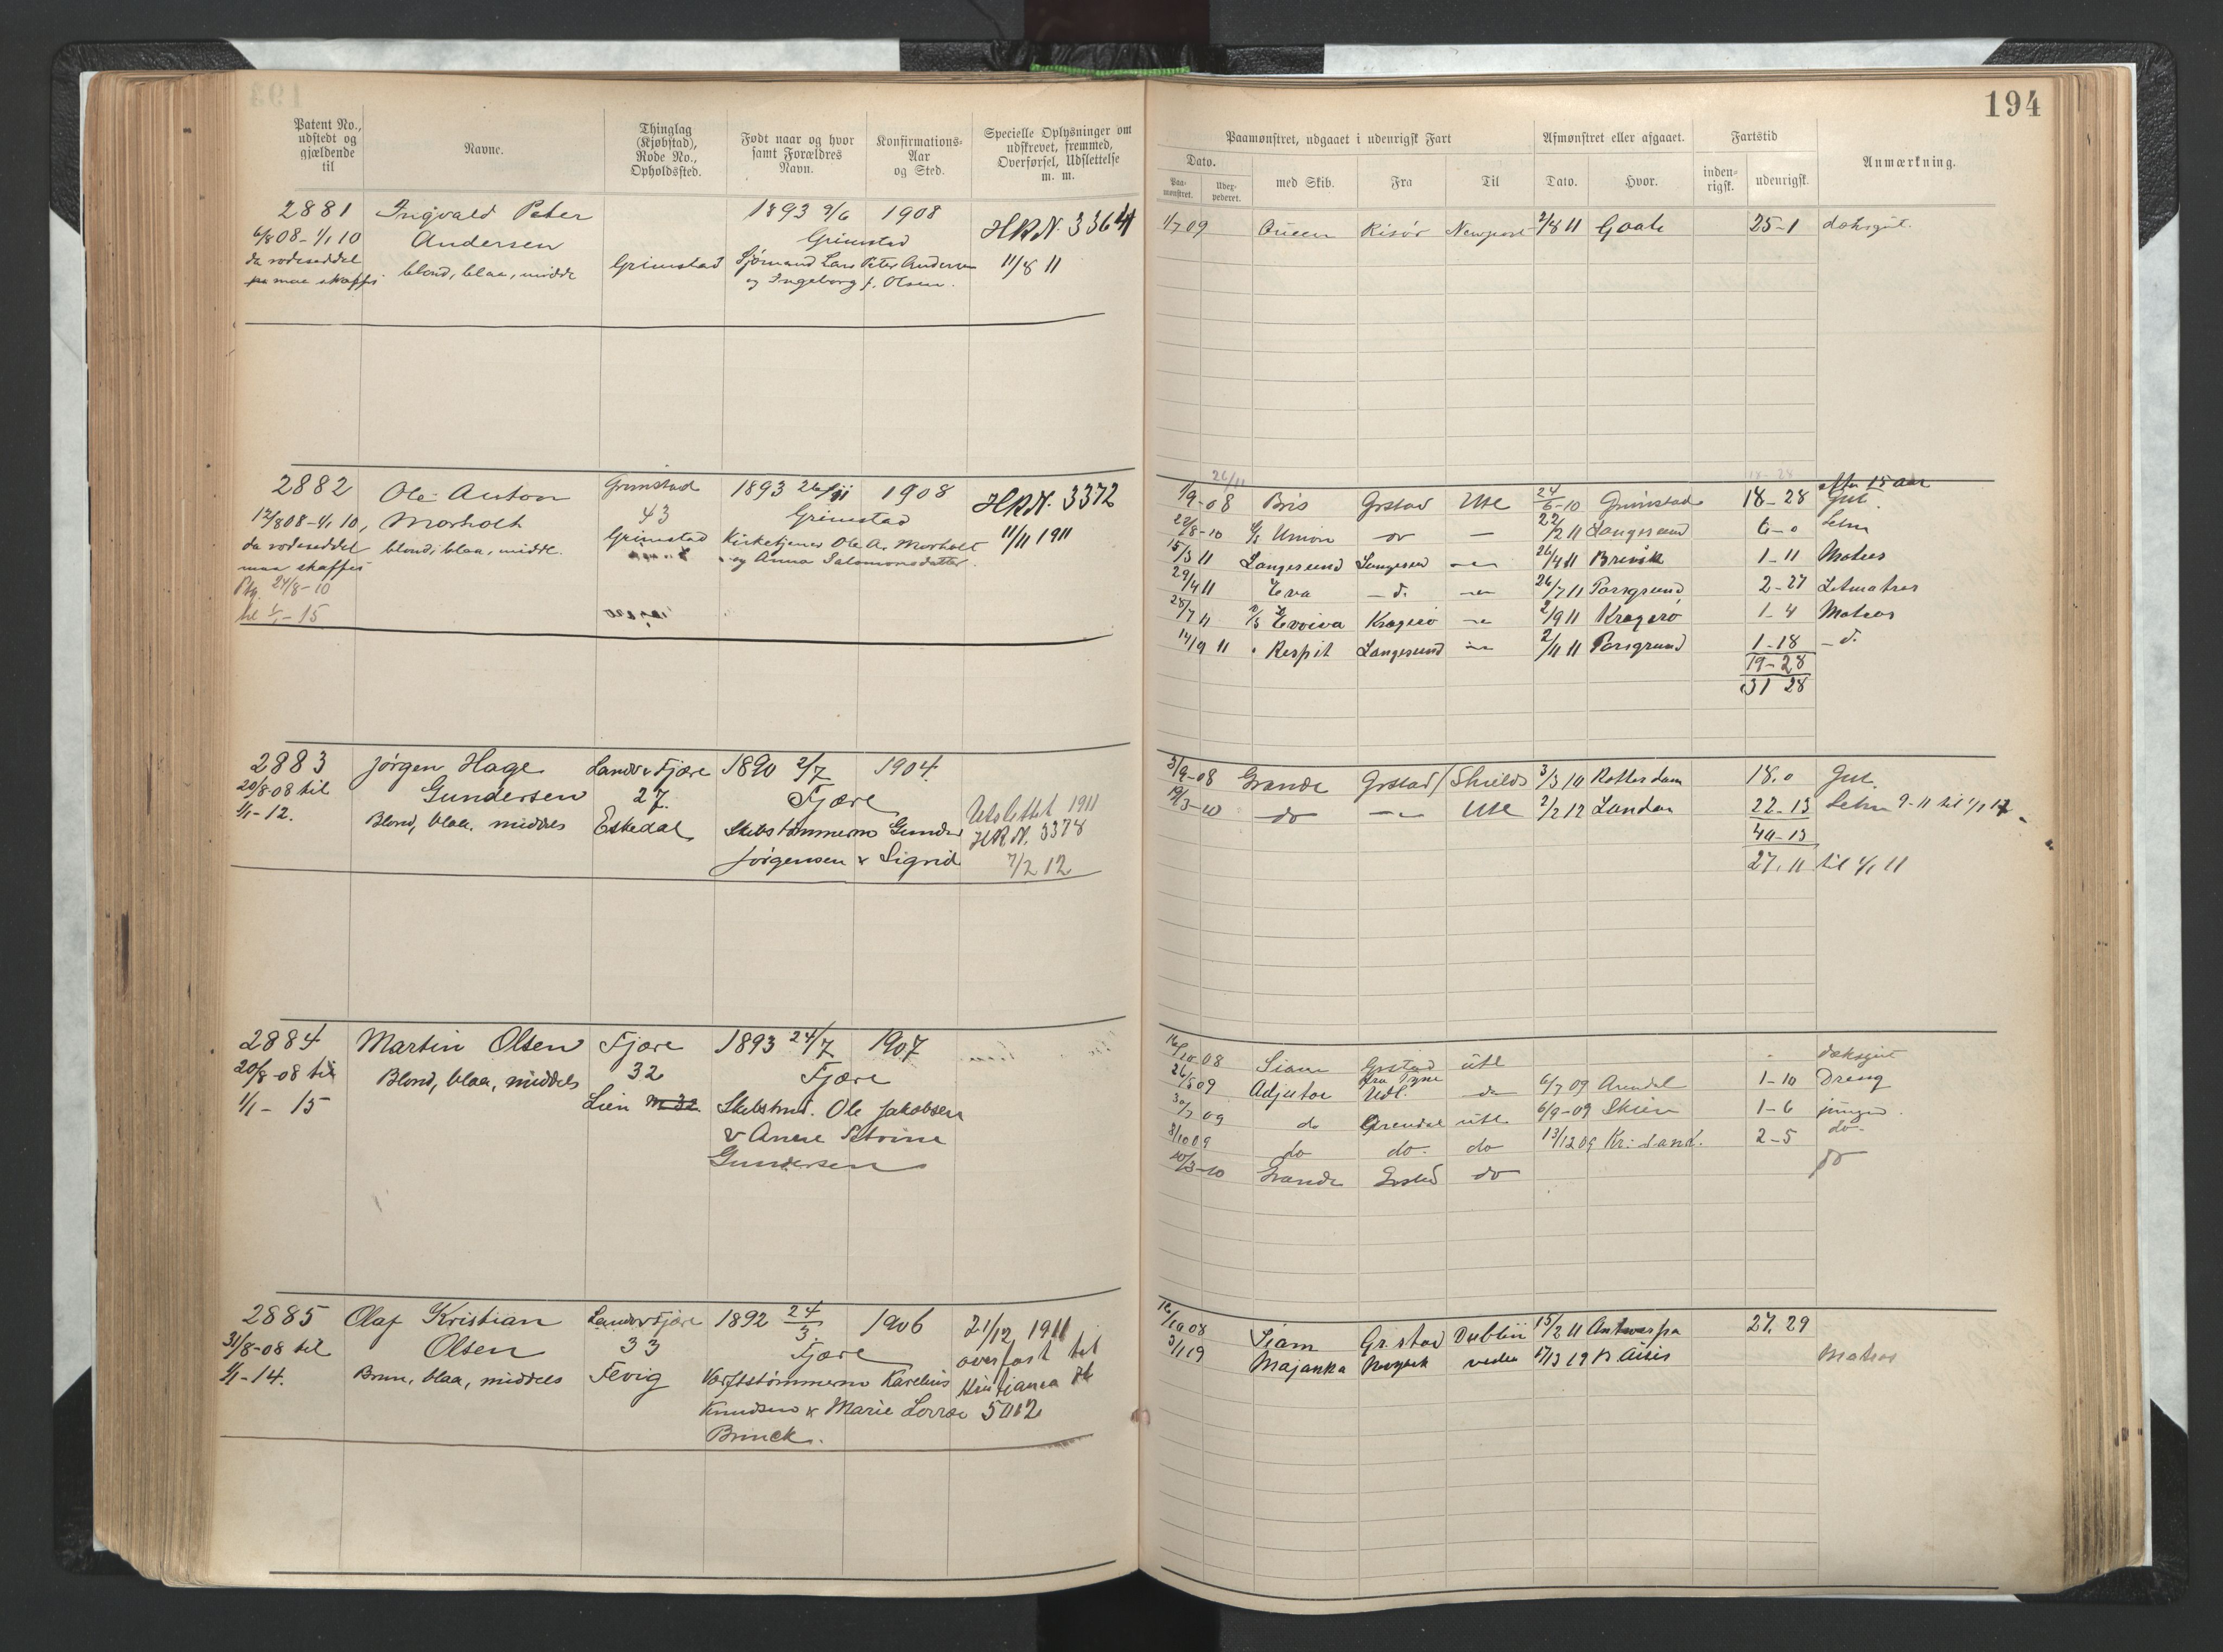 194
Patent No., udstedt og gjældende til
Navne.
Thinglag (Kjøbstad), Rode No., Opholdssted.
Født naar og hvor samt Forældres Navn.
Konfirmations-Aar og Sted.
Specielle Oplysninger om udskrevet, fremmed, Overførsel, Udslettelse m. m.
Paamønstret, udgaaet i udenrigsk Fart
Afmønstret eller afgaaet.
Fartstid
Anmærkning.
Dato.
Paa-mønstret.
Uder-pederet.
med Skib.
Fra
Til
Dato.
Hvor.
inden-rigsk.
udenrigsk.
2881 Ingvald Peter 1893 9/6 1908 HRN. 3364
6/8 08 - 1/1 10 Andersen Grimstad 11/8 11
da rodeseddel blond, blaa, midde Grimstad Sjømand Lars Peter Andersen
maa skaffes og Ingeborg f. Olsen.
1/7 09 Queen Risør Newport 2/8 11 Goole 25-1 dæksgut.
2882 Ole Anton Grimstad 1893 26/11 1908 HRN. 3372
12/8 08 - 1/1 10, Morholt 43 Grimstad 11/11 1911
da rodeseddel blond, blaa, midde. Grimstad Kirketjener Ole A. Morholt
maa skaffes og Anna Salomonsdatter.
Ptg. 24/8-10
til 1/1-15
26/11 18-28 efter 15 aar
1/9-08 Bris Grstad Utl 24/6-10 Grimstad 18-28 Gut.
22/8-10 Union do — 22/2 11 Langesund 6-0 Letm
15/3 11 Langesund Langesund 26/4 11 Brevik 1-11 Matros
29/4 11 Eva - d. 26/7 11 Porsgrund 2-27 Letmatros
28/7 11 Evviva Kragerø 2/9 11 Kragerø 1-4 Matros
14/9 11 Respit Langesund 2/11 11 Porsgrund 1-18 - d.
19-28
31 28
2883 Jørgen Hage Landv. Fjære 1890 2/7 1904.
20/8-08 til Gundersen 27. Fjære Udslettet 1911
1/1-12. Blond, blaa, middels Eskedal Skibstømmerm Gunder HRN. 3378
Jørgensen & Sigrid 7/2 12
3/9-08 Grande Grstad Shields 3/3 10 Rotterdam 18.0 Gut.
19/3-10 do Utl 2/2 12 London 22-13 Letm 9-11 til 1/1 12
40-13
27.11 til 1/1 11
2884 Martin Olsen Fjære 1893 24/7 1907
20/8-08 til Blond, blaa, middels 32 Fjære
1/1-15 Lien Skibstmd. Ole Jakobsen
& Anne Petrine
Gundersen
16/10-08 Siam Grstad utl dæksgut
26/5 09 Adjutor fra Tyne Utl. do 6/7 09 Arendal 1-10 Dreng
30/7 09 do Arendal utl 6/9-09 Skien 1-6 jungm.
8/10 09 do do. do 13/12 09 Kr:sand. 2-5 do.
10/3-10 Grande Grstad do do
2885 Olaf Kristian Landv. Fjære 1892 24/3 1906 21/12 1911
31/8-08 til Olsen 33 Fjære overført til
1/1-14. Brun, blaa, middels Fevig Verftstømmerm Karelius Kristiania
Knudsen & Marie Lovise 5012
Brinck.
16/10 08 Siam Grstad Dublin 15/2 11 Antwerpn 27.29
3/1 19 Majanka 17/3 19 Matros